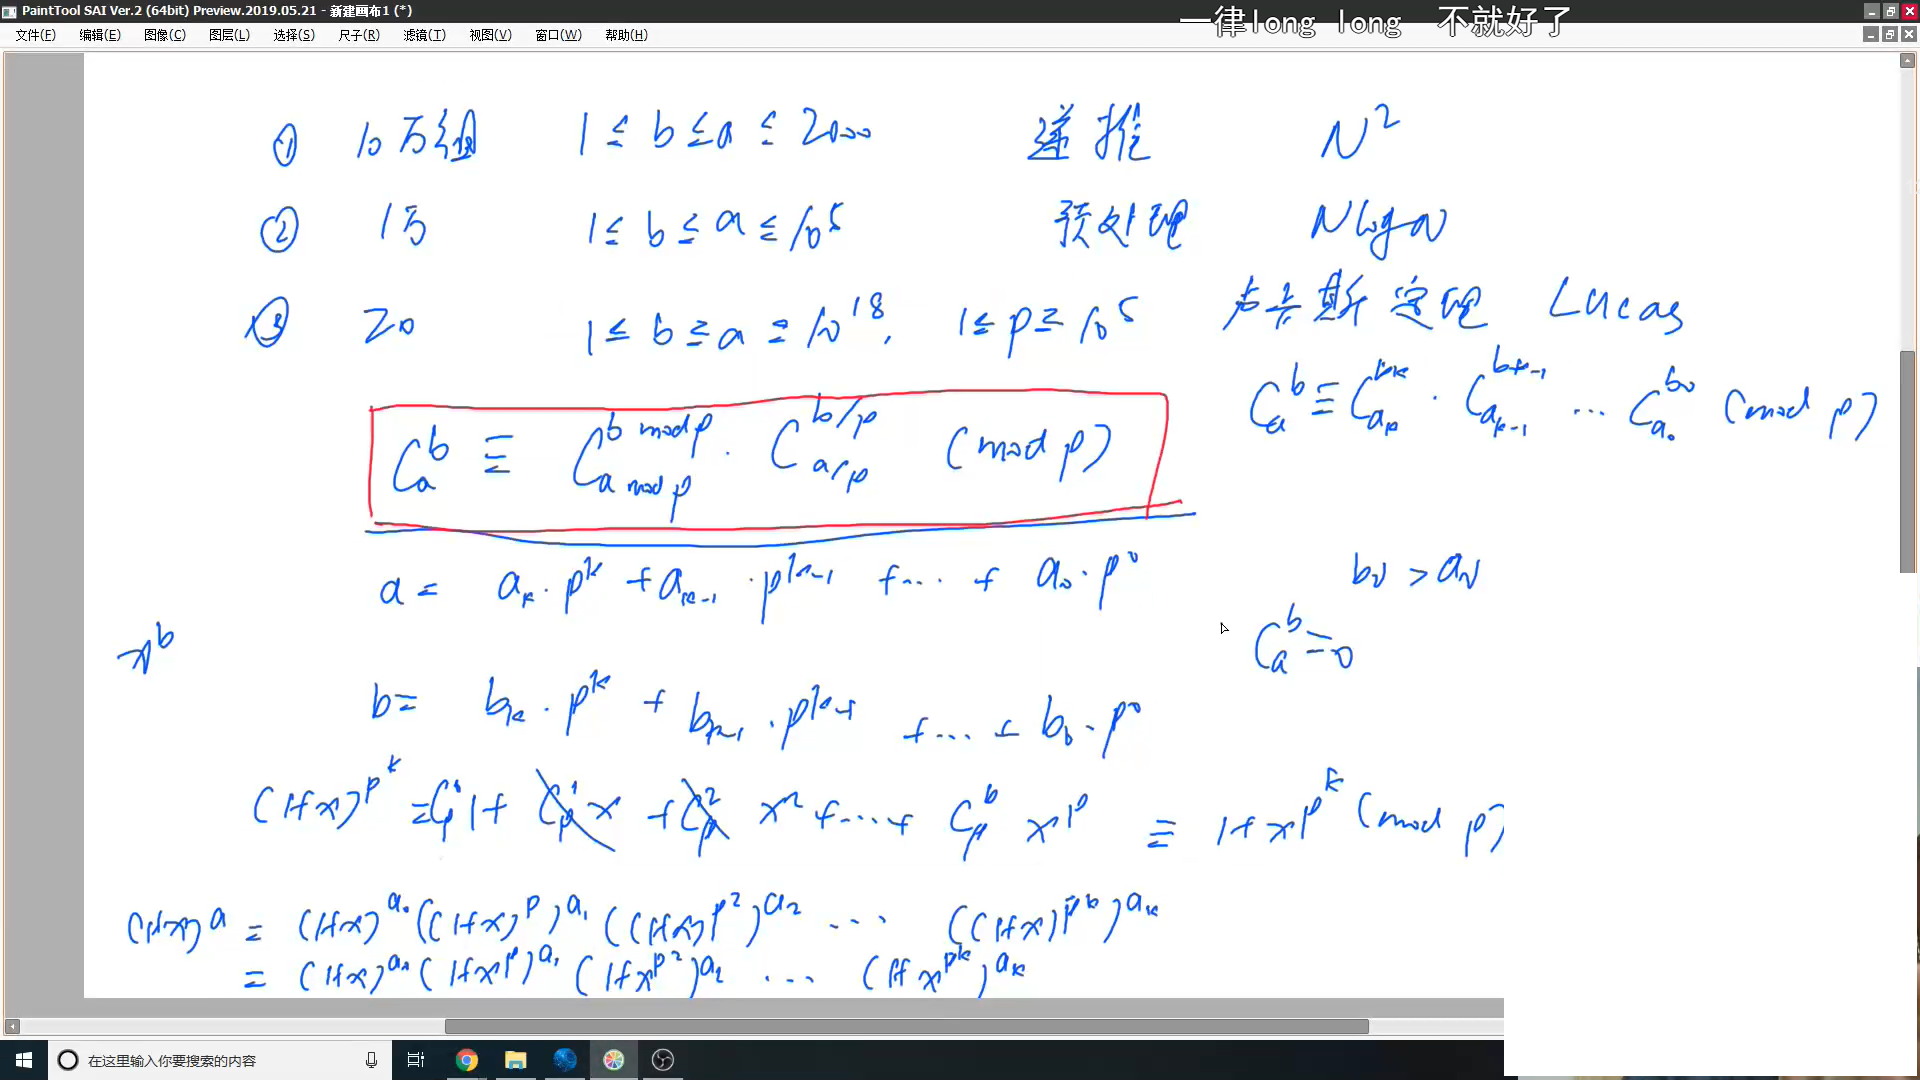 PaintTool SAI Ver.2 (64bit) Preview.2019.05.21 - 新建画布1 (*)
一律long long 不就好了
文件(F) 编辑(E) 图像(C) 图层(L) 选择(S) 尺子(R) 滤镜(T) 视图(V) 窗口(W) 帮助(H)
① 10万组 1 ≤ b ≤ a ≤ 2000 递推 N²
② 1万 1 ≤ b ≤ a ≤ 10^5 预处理 NlogN
③ 20 1 ≤ b ≤ a ≤ 10^18, 1 ≤ p ≤ 10^5 卢卡斯定理 Lucas
C_a^b ≡ C_{a_k}^{b_k} · C_{a_{k-1}}^{b_{k-1}} ... C_{a_0}^{b_0} (mod p)
C_a^b ≡ C_{a mod p}^{b mod p} · C_{a/p}^{b/p} (mod p)
a = a_k · p^k + a_{k-1} · p^{k-1} + ... + a_0 · p^0
C_a^b = 0
x^b
b = b_k · p^k + b_{k-1} · p^{k-1} + ... + b_0 · p^0
≡ 1 + x^{p^k} (mod p)
(1+x)^a = (1+x)^{a_0} ((1+x)^p)^{a_1} ((1+x)^{p^2})^{a_2} ... ((1+x)^{p^k})^{a_k}
= (1+x)^{a_0} (1+x^p)^{a_1} (1+x^{p^2})^{a_2} ... (1+x^{p^k})^{a_k}
在这里输入你要搜索的内容